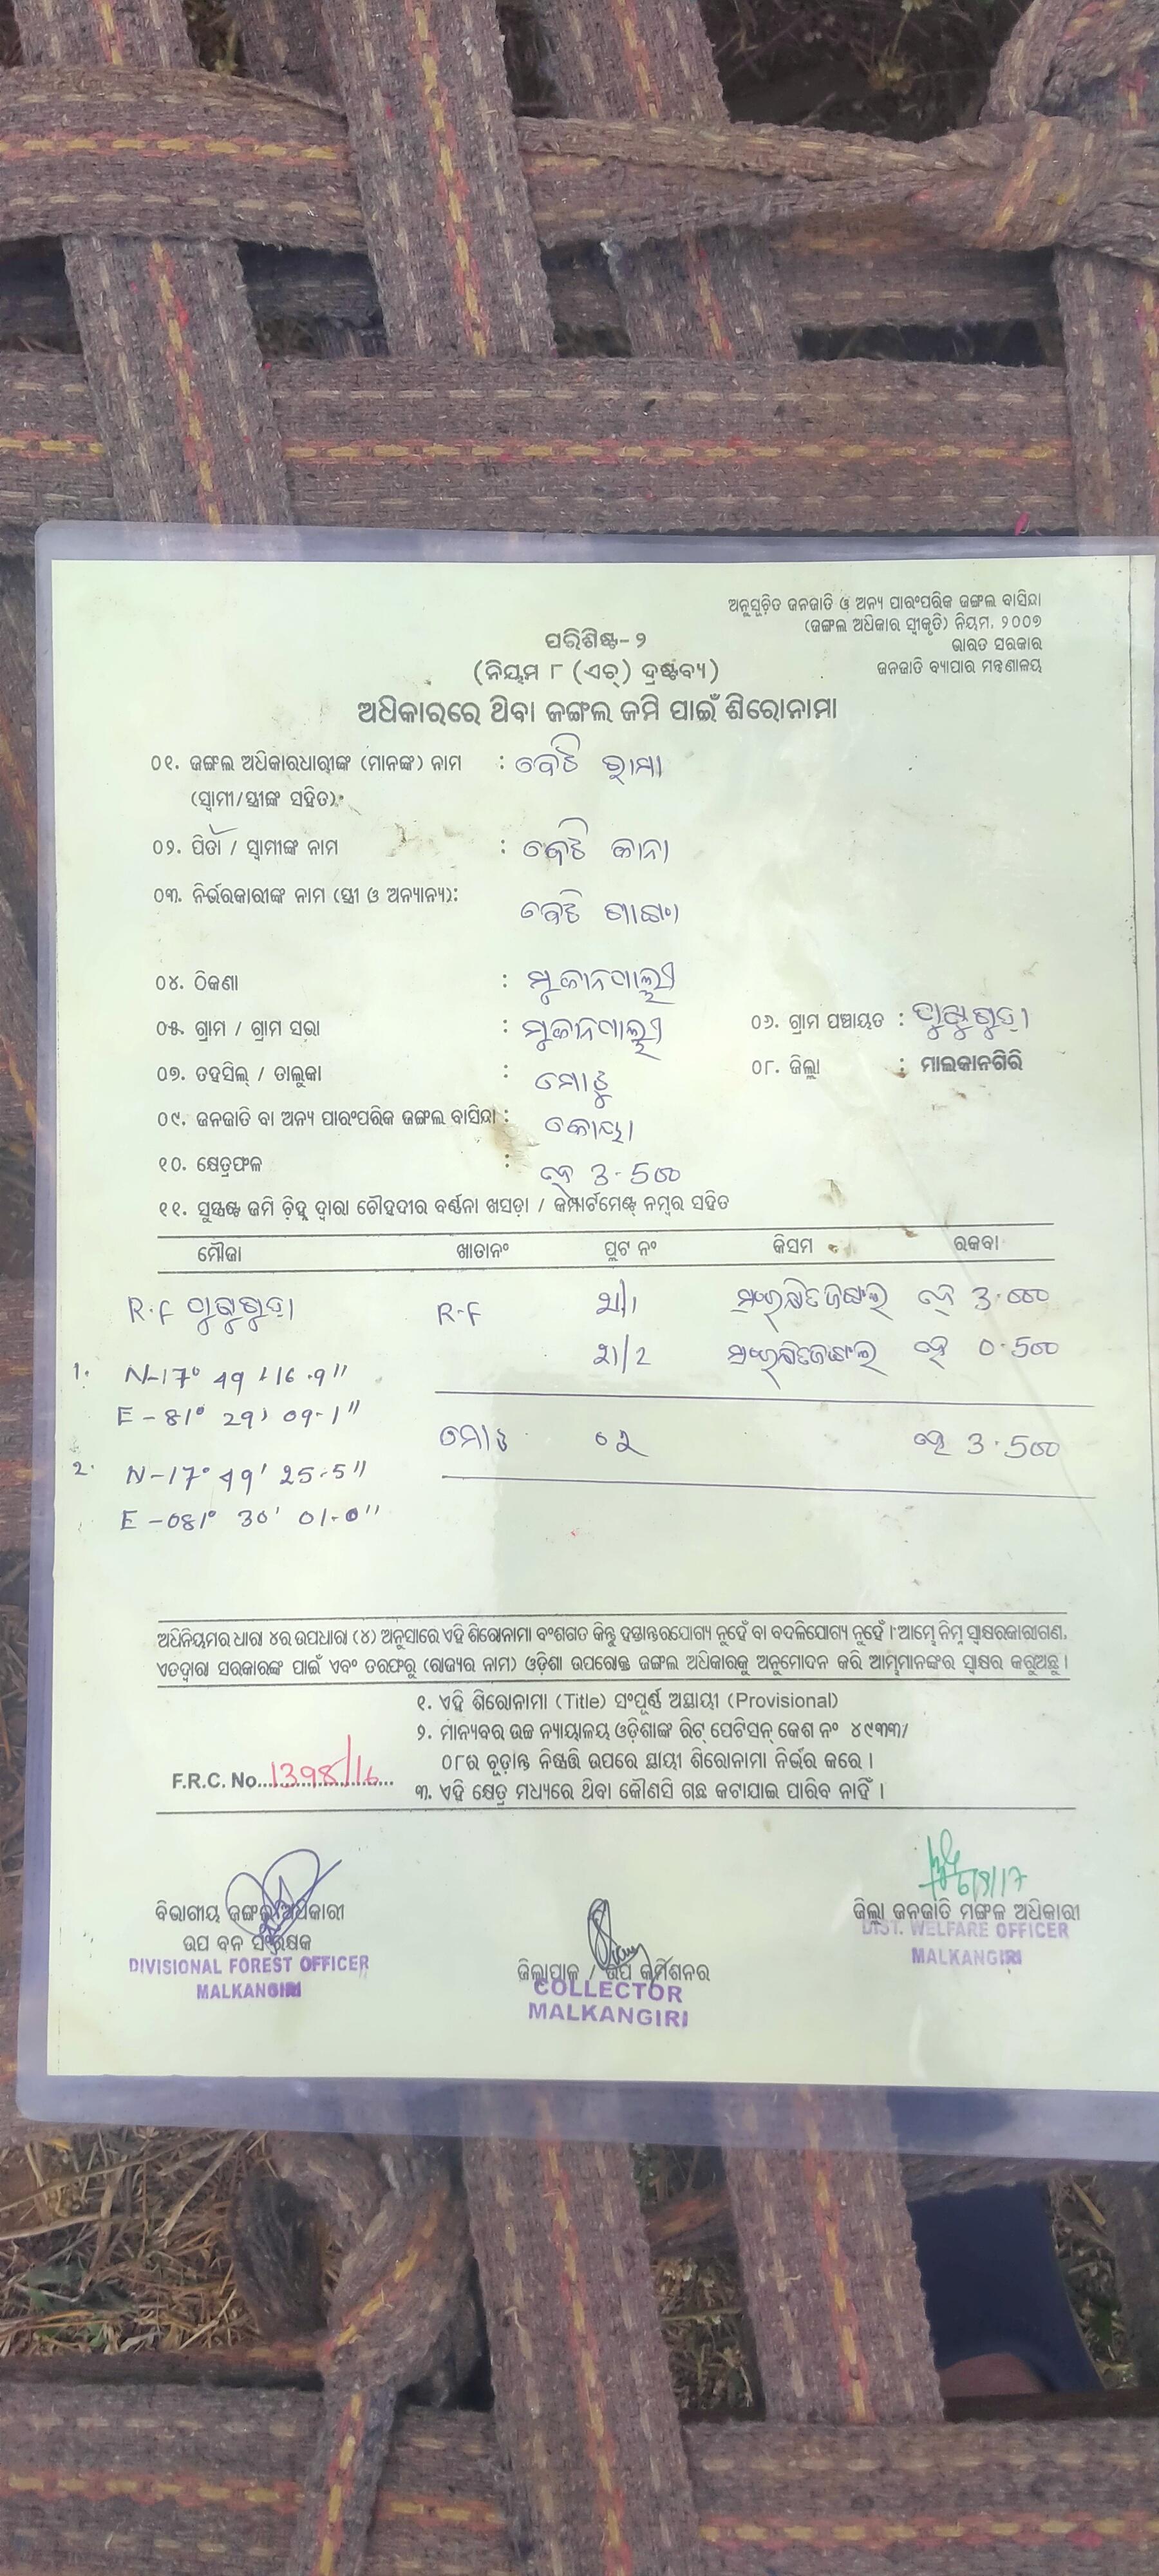 ଅନୁସୂଚିତ ଜନଜାତି ଓ ଅନ୍ୟ ପାରଂପରିକ ଜଙ୍ଗଲ ବାସିନ୍ଦା
(ଜଙ୍ଗଲ ଅଧିକାର ସ୍ୱୀକୃତି) ନିୟମ, ୨୦୦୭
ଭାରତ ସରକାର
ଜନଜାତି ବ୍ୟାପାର ମନ୍ତ୍ରଣାଳୟ
ପରିଶିଷ୍ଟ-୨
(ନିୟମ ୮ (ଏଚ୍) ଦ୍ରଷ୍ଟବ୍ୟ)
ଅଧିକାରରେ ଥିବା ଜଙ୍ଗଲ ଜମି ପାଇଁ ଶିରୋନାମା
୦୧. ଜଙ୍ଗଲ ଅଧିକାରଧାରୀଙ୍କ (ମାନଙ୍କ) ନାମ : ବେଟି ରାମା
(ସ୍ୱାମୀ/ସ୍ତ୍ରୀଙ୍କ ସହିତ):
୦୨. ପିତା / ସ୍ୱାମୀଙ୍କ ନାମ : ବେଟି କାନା
୦୩. ନିର୍ଭରକାରୀଙ୍କ ନାମ (ସ୍ତ୍ରୀ ଓ ଅନ୍ୟାନ୍ୟ): ବେଟି
୦୪. ଠିକଣା :
୦୫. ଗ୍ରାମ / ଗ୍ରାମ ସଭା :
୦୬. ଗ୍ରାମ ପଞ୍ଚାୟତ :
୦୭. ତହସିଲ୍ / ତାଲୁକା : ମୋଟୁ
୦୮. ଜିଲ୍ଲା : ମାଲକାନଗିରି
୦୯. ଜନଜାତି ବା ଅନ୍ୟ ପାରଂପରିକ ଜଙ୍ଗଲ ବାସିନ୍ଦା : କୋୟା
୧୦. କ୍ଷେତ୍ରଫଳ : 3.500
୧୧. ସୁସ୍ପଷ୍ଟ ଜମି ଚିହ୍ନ ଦ୍ୱାରା ଚୌହଦୀର ବର୍ଣ୍ଣନା ଖସଡ଼ା / କମ୍ପାର୍ଟମେଣ୍ଟ ନମ୍ବର ସହିତ
ମୌଜା ଖାତାନଂ ପ୍ଲଟ ନଂ କିସମ ରକବା
R.F R-F 3.000
0.500
1. N-17° 49' 16.9"
E-81° 29' 09.1"
ମୋଟ 3.500
2. N-17° 49' 25.5"
E-081° 30' 01.0"
ଅଧିନିୟମର ଧାରା ୪ର ଉପଧାରା (୪) ଅନୁସାରେ ଏହି ଶିରୋନାମା ବଂଶଗତ କିନ୍ତୁ ହସ୍ତାନ୍ତରଯୋଗ୍ୟ ନୁହେଁ ବା ବଦଳିଯୋଗ୍ୟ ନୁହେଁ । ଆମ୍ଭେ ନିମ୍ନ ସ୍ୱାକ୍ଷରକାରୀଗଣ,
ଏତଦ୍ୱାରା ସରକାରଙ୍କ ପାଇଁ ଏବଂ ତରଫରୁ (ରାଜ୍ୟର ନାମ) ଓଡ଼ିଶା ଉପରୋକ୍ତ ଜଙ୍ଗଲ ଅଧିକାରକୁ ଅନୁମୋଦନ କରି ଆମ୍ଭମାନଙ୍କର ସ୍ୱାକ୍ଷର କରୁଅଛୁ ।
୧. ଏହି ଶିରୋନାମା (Title) ସଂପୂର୍ଣ୍ଣ ଅସ୍ଥାୟୀ (Provisional)
୨. ମାନ୍ୟବର ଉଚ୍ଚ ନ୍ୟାୟାଳୟ ଓଡ଼ିଶାଙ୍କ ରିଟ୍ ପେଟିସନ୍ କେଶ ନଂ ୪୯୩୩/
୦୮ର ଚୂଡ଼ାନ୍ତ ନିଷ୍ପତ୍ତି ଉପରେ ସ୍ଥାୟୀ ଶିରୋନାମା ନିର୍ଭର କରେ ।
F.R.C. No. 1398/16
୩. ଏହି କ୍ଷେତ୍ର ମଧ୍ୟରେ ଥିବା କୌଣସି ଗଛ କଟାଯାଇ ପାରିବ ନାହିଁ ।
ବିଭାଗୀୟ ଜଙ୍ଗଲ ଅଧିକାରୀ
ଉପ ବନ ସଂରକ୍ଷକ
DIVISIONAL FOREST OFFICER
MALKANGIRI
ଜିଲ୍ଲାପାଳ / ଉପ କମିଶନର
COLLECTOR
MALKANGIRI
ଜିଲ୍ଲା ଜନଜାତି ମଙ୍ଗଳ ଅଧିକାରୀ
DIST. WELFARE OFFICER
MALKANGIRI